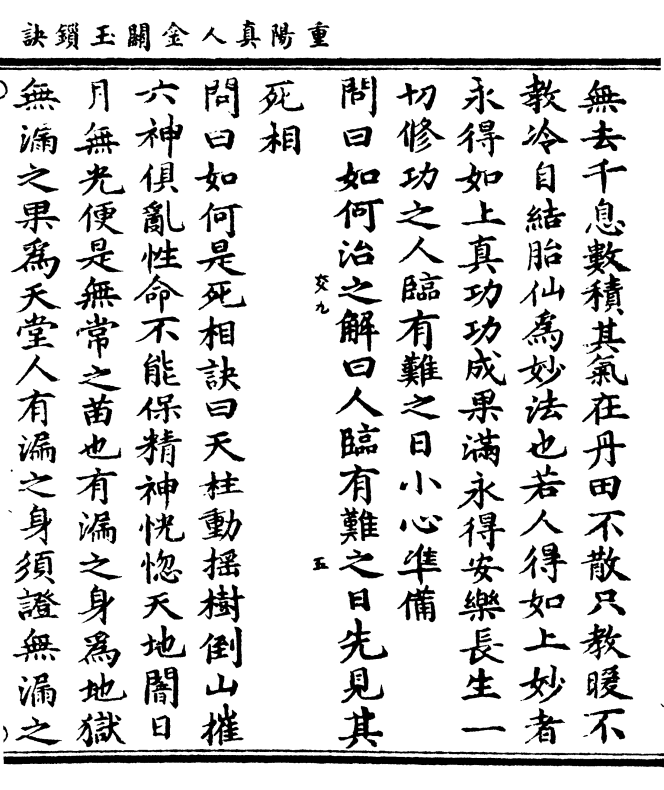 重陽真人金關玉鎖訣
無去千息數積其氣在丹田不散只教暖不
教冷自結胎仙為妙法也若人得如上妙者
永得如上真功功成果滿永得安樂長生一
切修功之人臨有難之日小心準備
問曰如何治之解曰人臨有難之日先見其
交九
五
死相
問曰如何是死相訣曰天柱動搖樹倒山摧
六神俱亂性命不能保精神恍惚天地闇日
月無光便是無常之苗也有漏之身為地獄
無漏之果為天堂人有漏之身須證無漏之